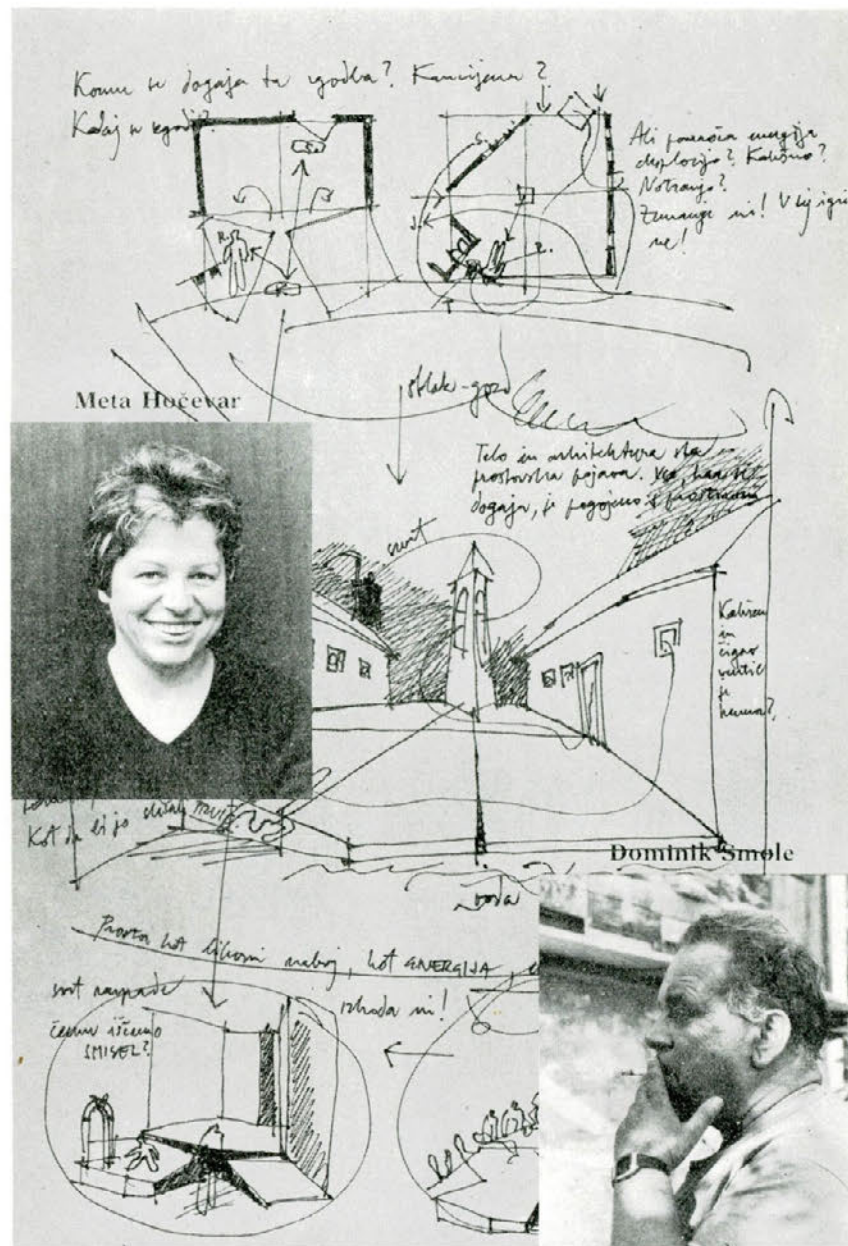 Komu se dogaja ta zgodba? Kancijanu?
Kdaj se zgodi?
Ali pomeni energija
eksplozijo? Kakšno?
Notranjo?
Zunanje ni! V tej igri
ne!
R.
oblak - gozd
Meta Hočevar
Telo in arhitektura sta
prostorska pojava. Vse, kar se
dogaja, je pogojeno s prostorom
smrt
in
čigav
Kot da bi jo
Dominik Smole
voda
Prostor kot likovni naboj, kot ENERGIJA,
svet razpade
izhoda ni!
čemu iščemo
SMISEL?